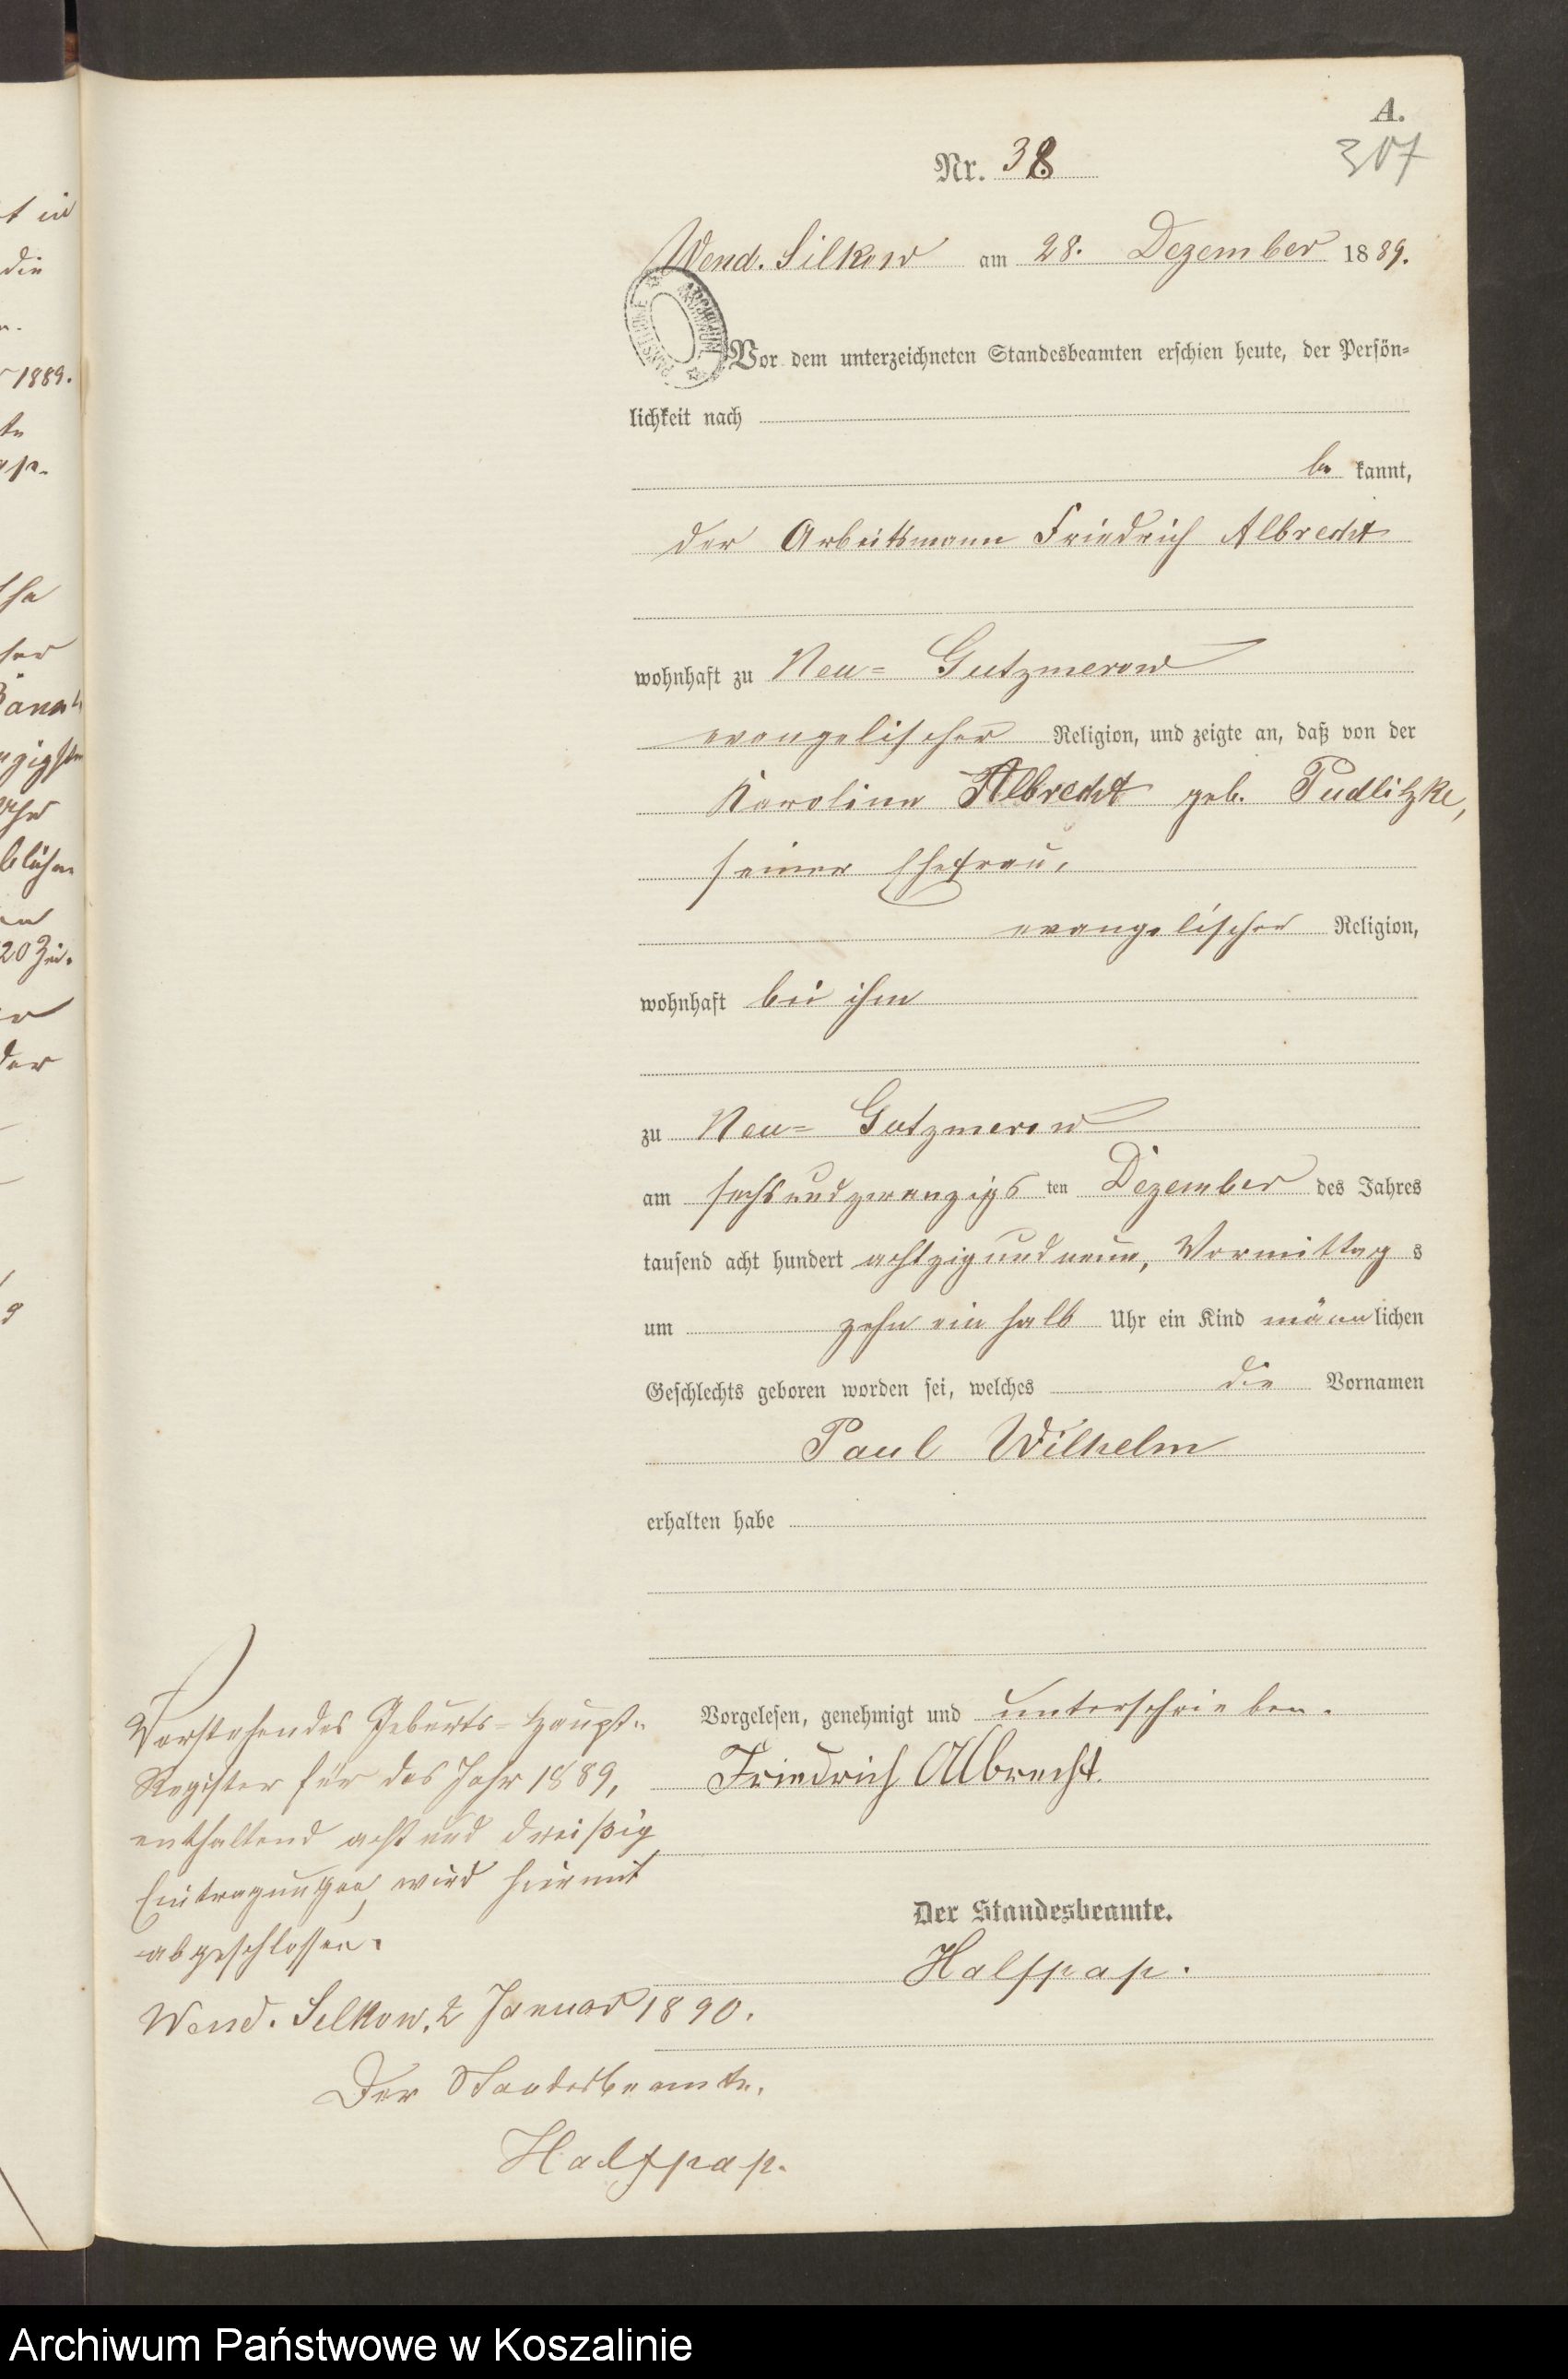 A.
307
Nr. 38
Wend. Silkow am 28. Dezember 1889.
Vor dem unterzeichneten Standesbeamten erschien heute, der Persön=
lichkeit nach
be kannt,
der Arbeitsmann Friedrich Albrecht
wohnhaft zu Neu= Gutzmerow
evangelischer Religion, und zeigte an, daß von der
Karoline Albrecht geb. Pudlitzke,
seiner Ehefrau,
evangelischer Religion,
wohnhaft bei ihm
zu Neu= Gutzmerow
am sechsundzwanzigs ten Dezember des Jahres
tausend acht hundert achtzig und neun, Vormittag s
um zehn ein halb Uhr ein Kind männ lichen
Geschlechts geboren worden sei, welches die Vornamen
Paul Wilhelm
erhalten habe
Vorgelesen, genehmigt und unterschrieben.
Friedrich Albrecht.
Der Standesbeamte.
Halfpap.
Vorstehendes Geburts=Haupt=
Register für das Jahr 1889,
enthaltend acht und dreißig
Eintragungen, wird hiermit
abgeschlossen.
Wend. Silkow, 2 Januar 1890.
Der Standesbeamte.
Halfpap.
t in
die
1889.
te
der
20
Archiwum Państwowe w Koszalinie